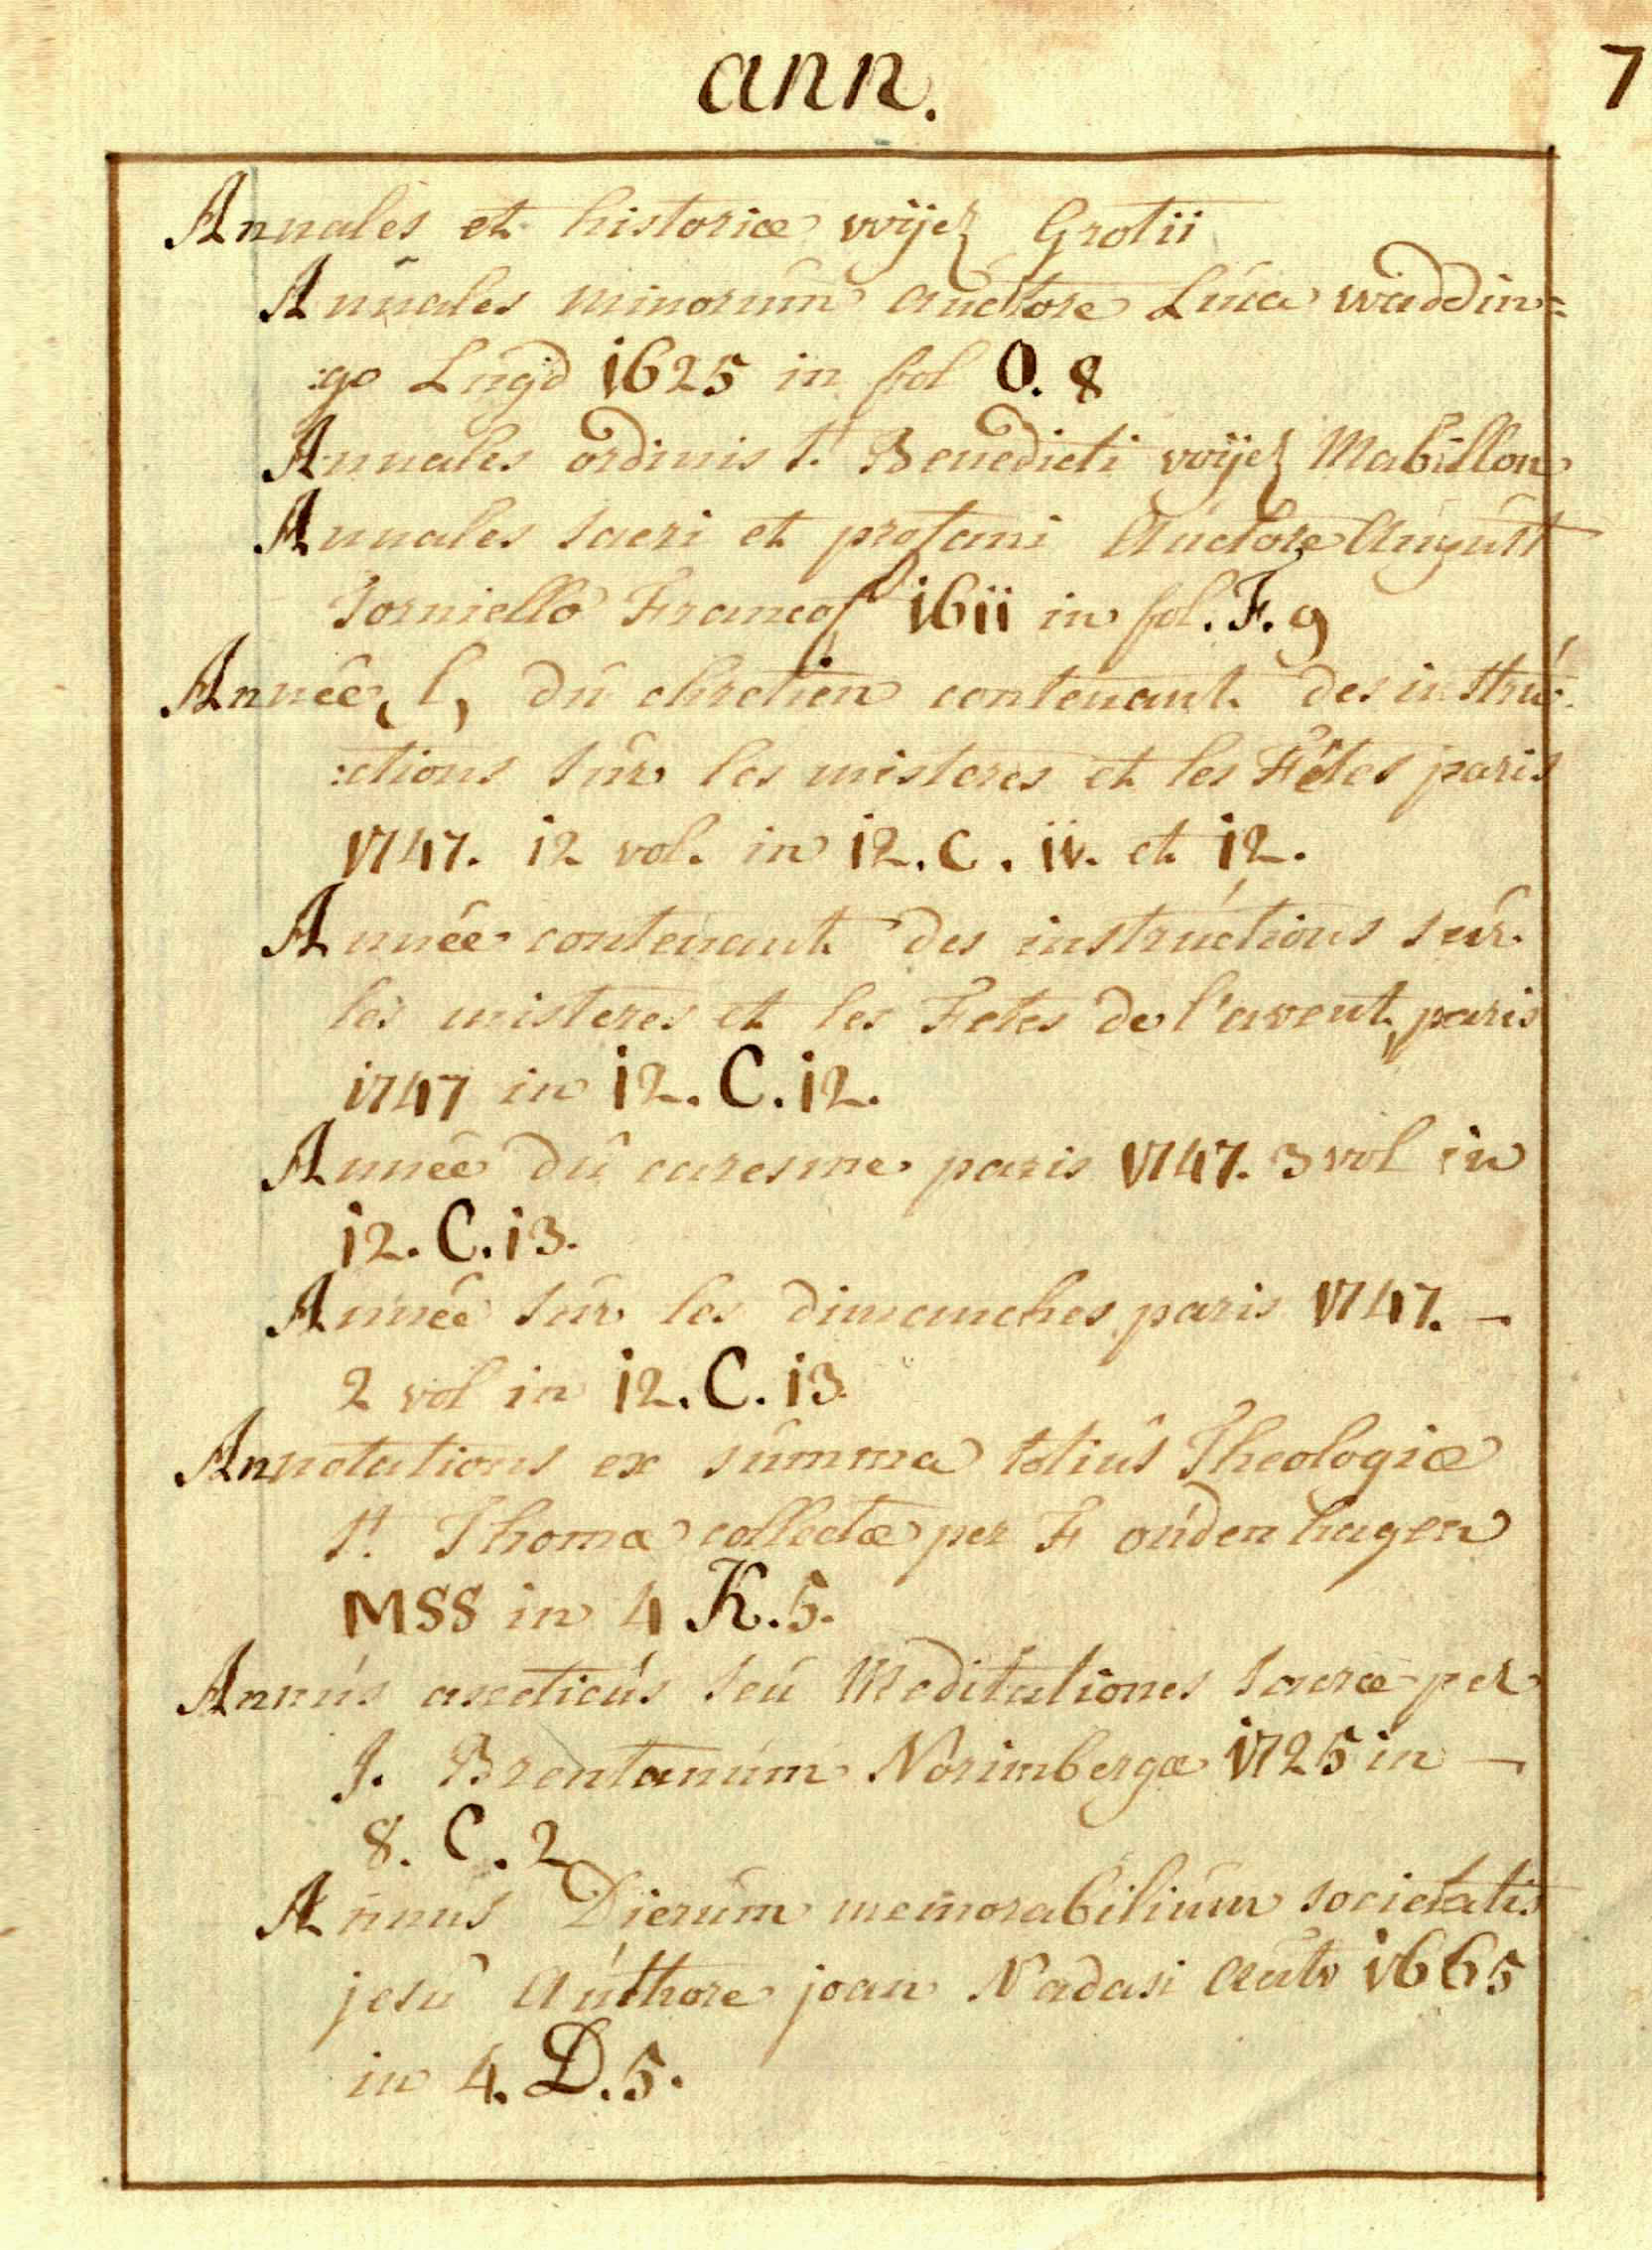 ann.
7
Annales et historiæ voÿez Grotii
Annales minorum auctore Luca waddin=
:go Lugd 1625 in fol O. 8
Annales ordinis st. Benedicti voÿez Mabillon
Annales sacri et profani Auctore August
Torniello Francof 1611 in fol. F. 9
Année, l, du chretien contenant des instru-
:ctions sur les misteres et les Fêtes paris
1747. 12 vol. in 12. C. 11. et 12.
Année contenant des instructions sur
les misteres et les Fetes de l'avent, paris
1747 in 12. C. 12.
Année du caresme paris 1747. 3 vol in
12. C. 13.
Année sur les dimanches paris 1747. -
2 vol in 12. C. 13
Annotations ex summa totius Theologiæ
st. Thoma collectæ per F oudenhagen
MSS in 4 K. 5.
Annus asceticus seu Meditationes sacræ per
J. Brentanum Norimbergæ 1725 in -
8. C. 2
Annus Dierum memorabilium societatis
jesu Authore joan Nadasi Antv 1665
in 4. D. 5.